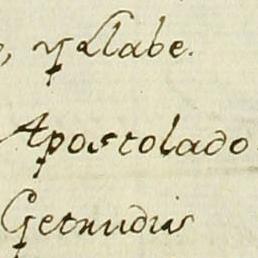 , y Llabe.
Apostolado
Getrudis